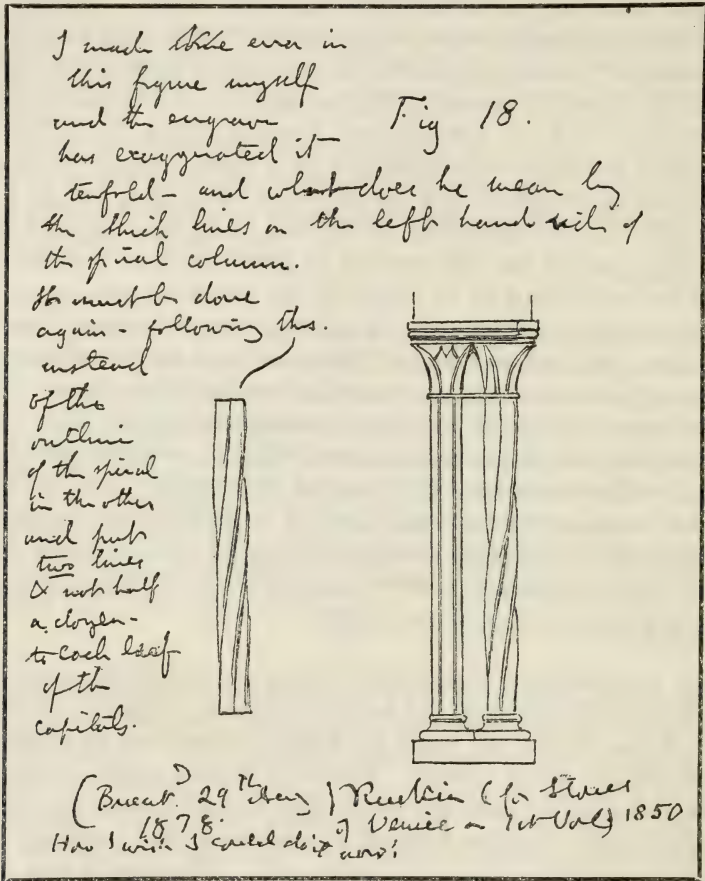 I made the error in
this figure myself
and the engraver
has exaggerated it
Fig 18.
tenfold – and what does he mean by
the thick lines on the left hand side of
the spiral column.
It must be done
again – following this.
instead
of the
outline
of the spiral
in the other
and put
two lines
& not half
a dozen –
to each leaf
of the
capitals.
(Brant. 29th Aug) Ruskin (for Stones
1878. of Venice on 1st Vol) 1850
How I wish I could do it now!